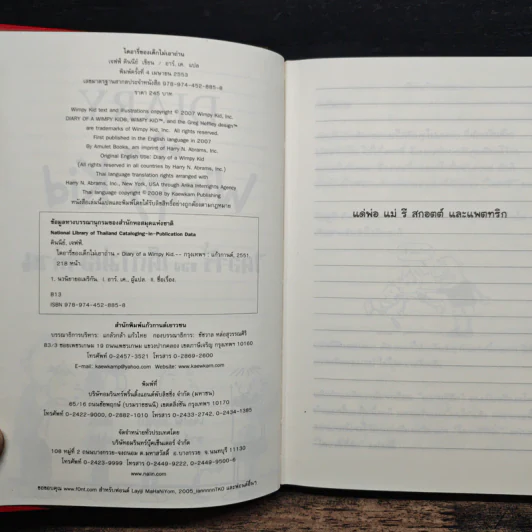 ไดอารี่ของเด็กไม่เอาถ่าน
เจฟฟ์ คินนีย์ เขียน / อาร์. เค. แปล
พิมพ์ครั้งที่ 4 เมษายน 2553
เลขมาตรฐานสากลประจำหนังสือ 978-974-452-885-8
ราคา 245 บาท
Wimpy Kid text and illustrations copyright © 2007 Wimpy Kid, Inc.
DIARY OF A WIMPY KID®, WIMPY KID™, and the Greg Heffley design™
are trademarks of Wimpy Kid, Inc. All rights reserved.
First published in the English language in 2007
By Amulet Books, an imprint of Harry N. Abrams, Inc.
Original English title: Diary of a Wimpy Kid
(All rights reserved in all countries by Harry N. Abrams, Inc.)
Thai language translation rights arranged with
Harry N. Abrams, Inc., New York, USA through Arika Interrights Agency
Thai language copyright © 2008 by Kaewkarn Publishing
หนังสือเล่มนี้แปลและพิมพ์โดยได้รับลิขสิทธิ์อย่างถูกต้องตามกฎหมาย
ข้อมูลทางบรรณานุกรมของสำนักหอสมุดแห่งชาติ
National Library of Thailand Cataloging-in-Publication Data
คินนีย์, เจฟฟ์.
ไดอารี่ของเด็กไม่เอาถ่าน = Diary of a Wimpy Kid.-- กรุงเทพฯ : แก้วกานต์, 2551.
218 หน้า.
1. นวนิยายอเมริกัน. I. อาร์. เค., ผู้แปล. II. ชื่อเรื่อง.
813
ISBN 978-974-452-885-8
สำนักพิมพ์แก้วกานต์เยาวชน
บรรณาธิการบริหาร: แกล้วกล้า แก้วไทย กองบรรณาธิการ: ชัชวาล หล่อสุวรรณศิริ
83/3 ซอยเพชรเกษม 19 ถนนเพชรเกษม แขวงปากคลอง เขตภาษีเจริญ กรุงเทพฯ 10160
โทรศัพท์ 0-2457-3521 โทรสาร 0-2869-2600
E-mail: kaewkarnp@yahoo.com Website: www.kaewkarn.com
พิมพ์ที่
บริษัทอมรินทร์พริ้นติ้งแอนด์พับลิชชิ่ง จำกัด (มหาชน)
65/16 ถนนชัยพฤกษ์ (บรมราชชนนี) เขตตลิ่งชัน กรุงเทพฯ 10170
โทรศัพท์ 0-2422-9000, 0-2882-1010 โทรสาร 0-2433-2742, 0-2434-1385
จัดจำหน่ายทั่วประเทศโดย
บริษัทอมรินทร์บุ๊คเซ็นเตอร์ จำกัด
108 หมู่ที่ 2 ถนนบางกรวย-จงถนอม ต.มหาสวัสดิ์ อ.บางกรวย จ.นนทบุรี 11130
โทรศัพท์ 0-2423-9999 โทรสาร 0-2449-9222, 0-2449-9500-6
www.naiin.com
ขอขอบคุณ www.f0nt.com สำหรับฟอนต์ Layiji MaHaNiYom, 2005_
แด่พ่อ แม่ รี สกอตต์ และแพทริก